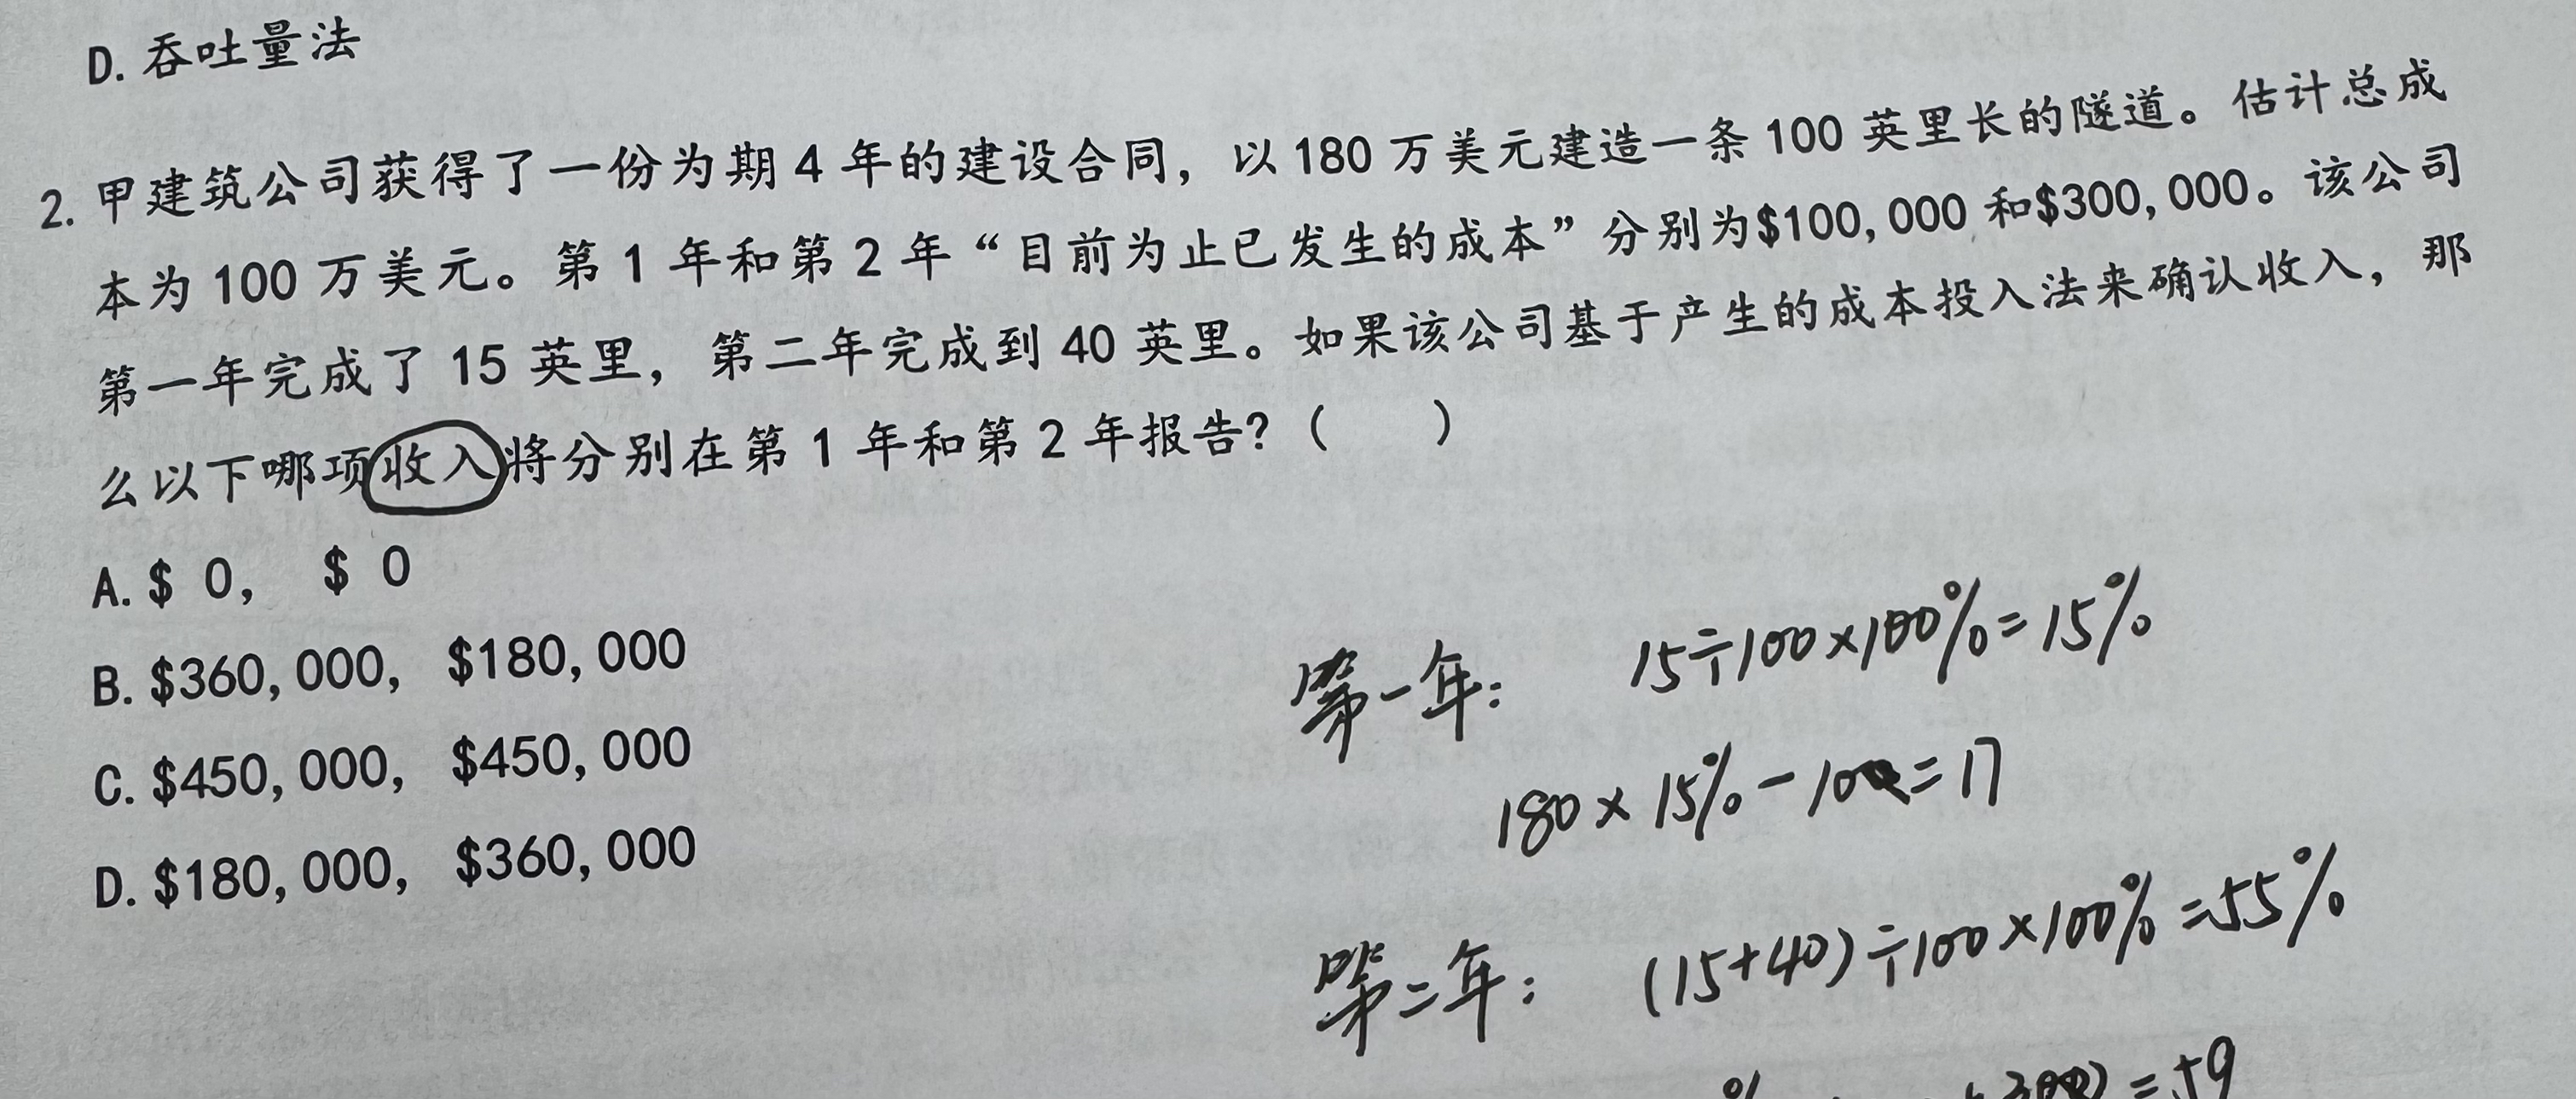 D. 吞吐量法
2. 甲建筑公司获得了一份为期 4 年的建设合同，以 180 万美元建造一条 100 英里长的隧道。估计总成
本为 100 万美元。第 1 年和第 2 年“目前为止已发生的成本”分别为$100,000 和$300,000。该公司
第一年完成了 15 英里，第二年完成到 40 英里。如果该公司基于产生的成本投入法来确认收入，那
么以下哪项收入将分别在第 1 年和第 2 年报告?（ ）
A. $ 0, $ 0
B. $360,000, $180,000
C. $450,000, $450,000
D. $180,000, $360,000
第一年: 15÷100×100%=15%
180×15%-10=17
第二年: (15+40)÷100×100%=55%
=59